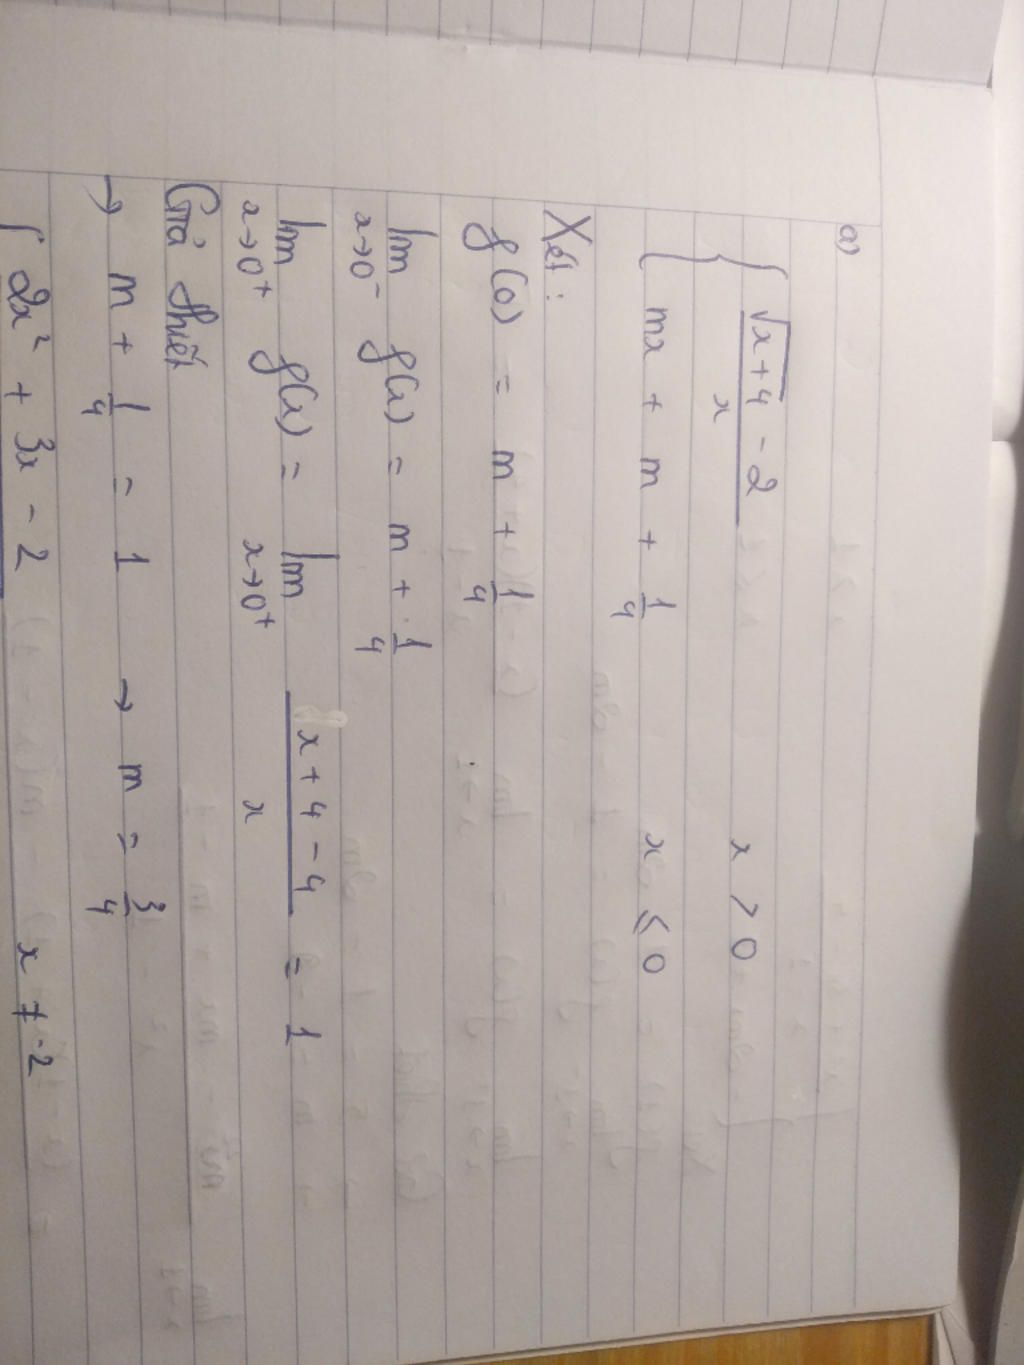 a)
{ √x+4 - 2 / x    x > 0
mx + m + 1/4    x ≤ 0
Xét:
f(0) = m + 1/4
lim x→0⁻ f(x) = m + 1/4
lim x→0⁺ f(x) = lim x→0⁺ x+4-4 / x = 1
Giả thiết
→ m + 1/4 = 1 → m = 3/4
{ 2x² + 3x - 2    x ≠ -2